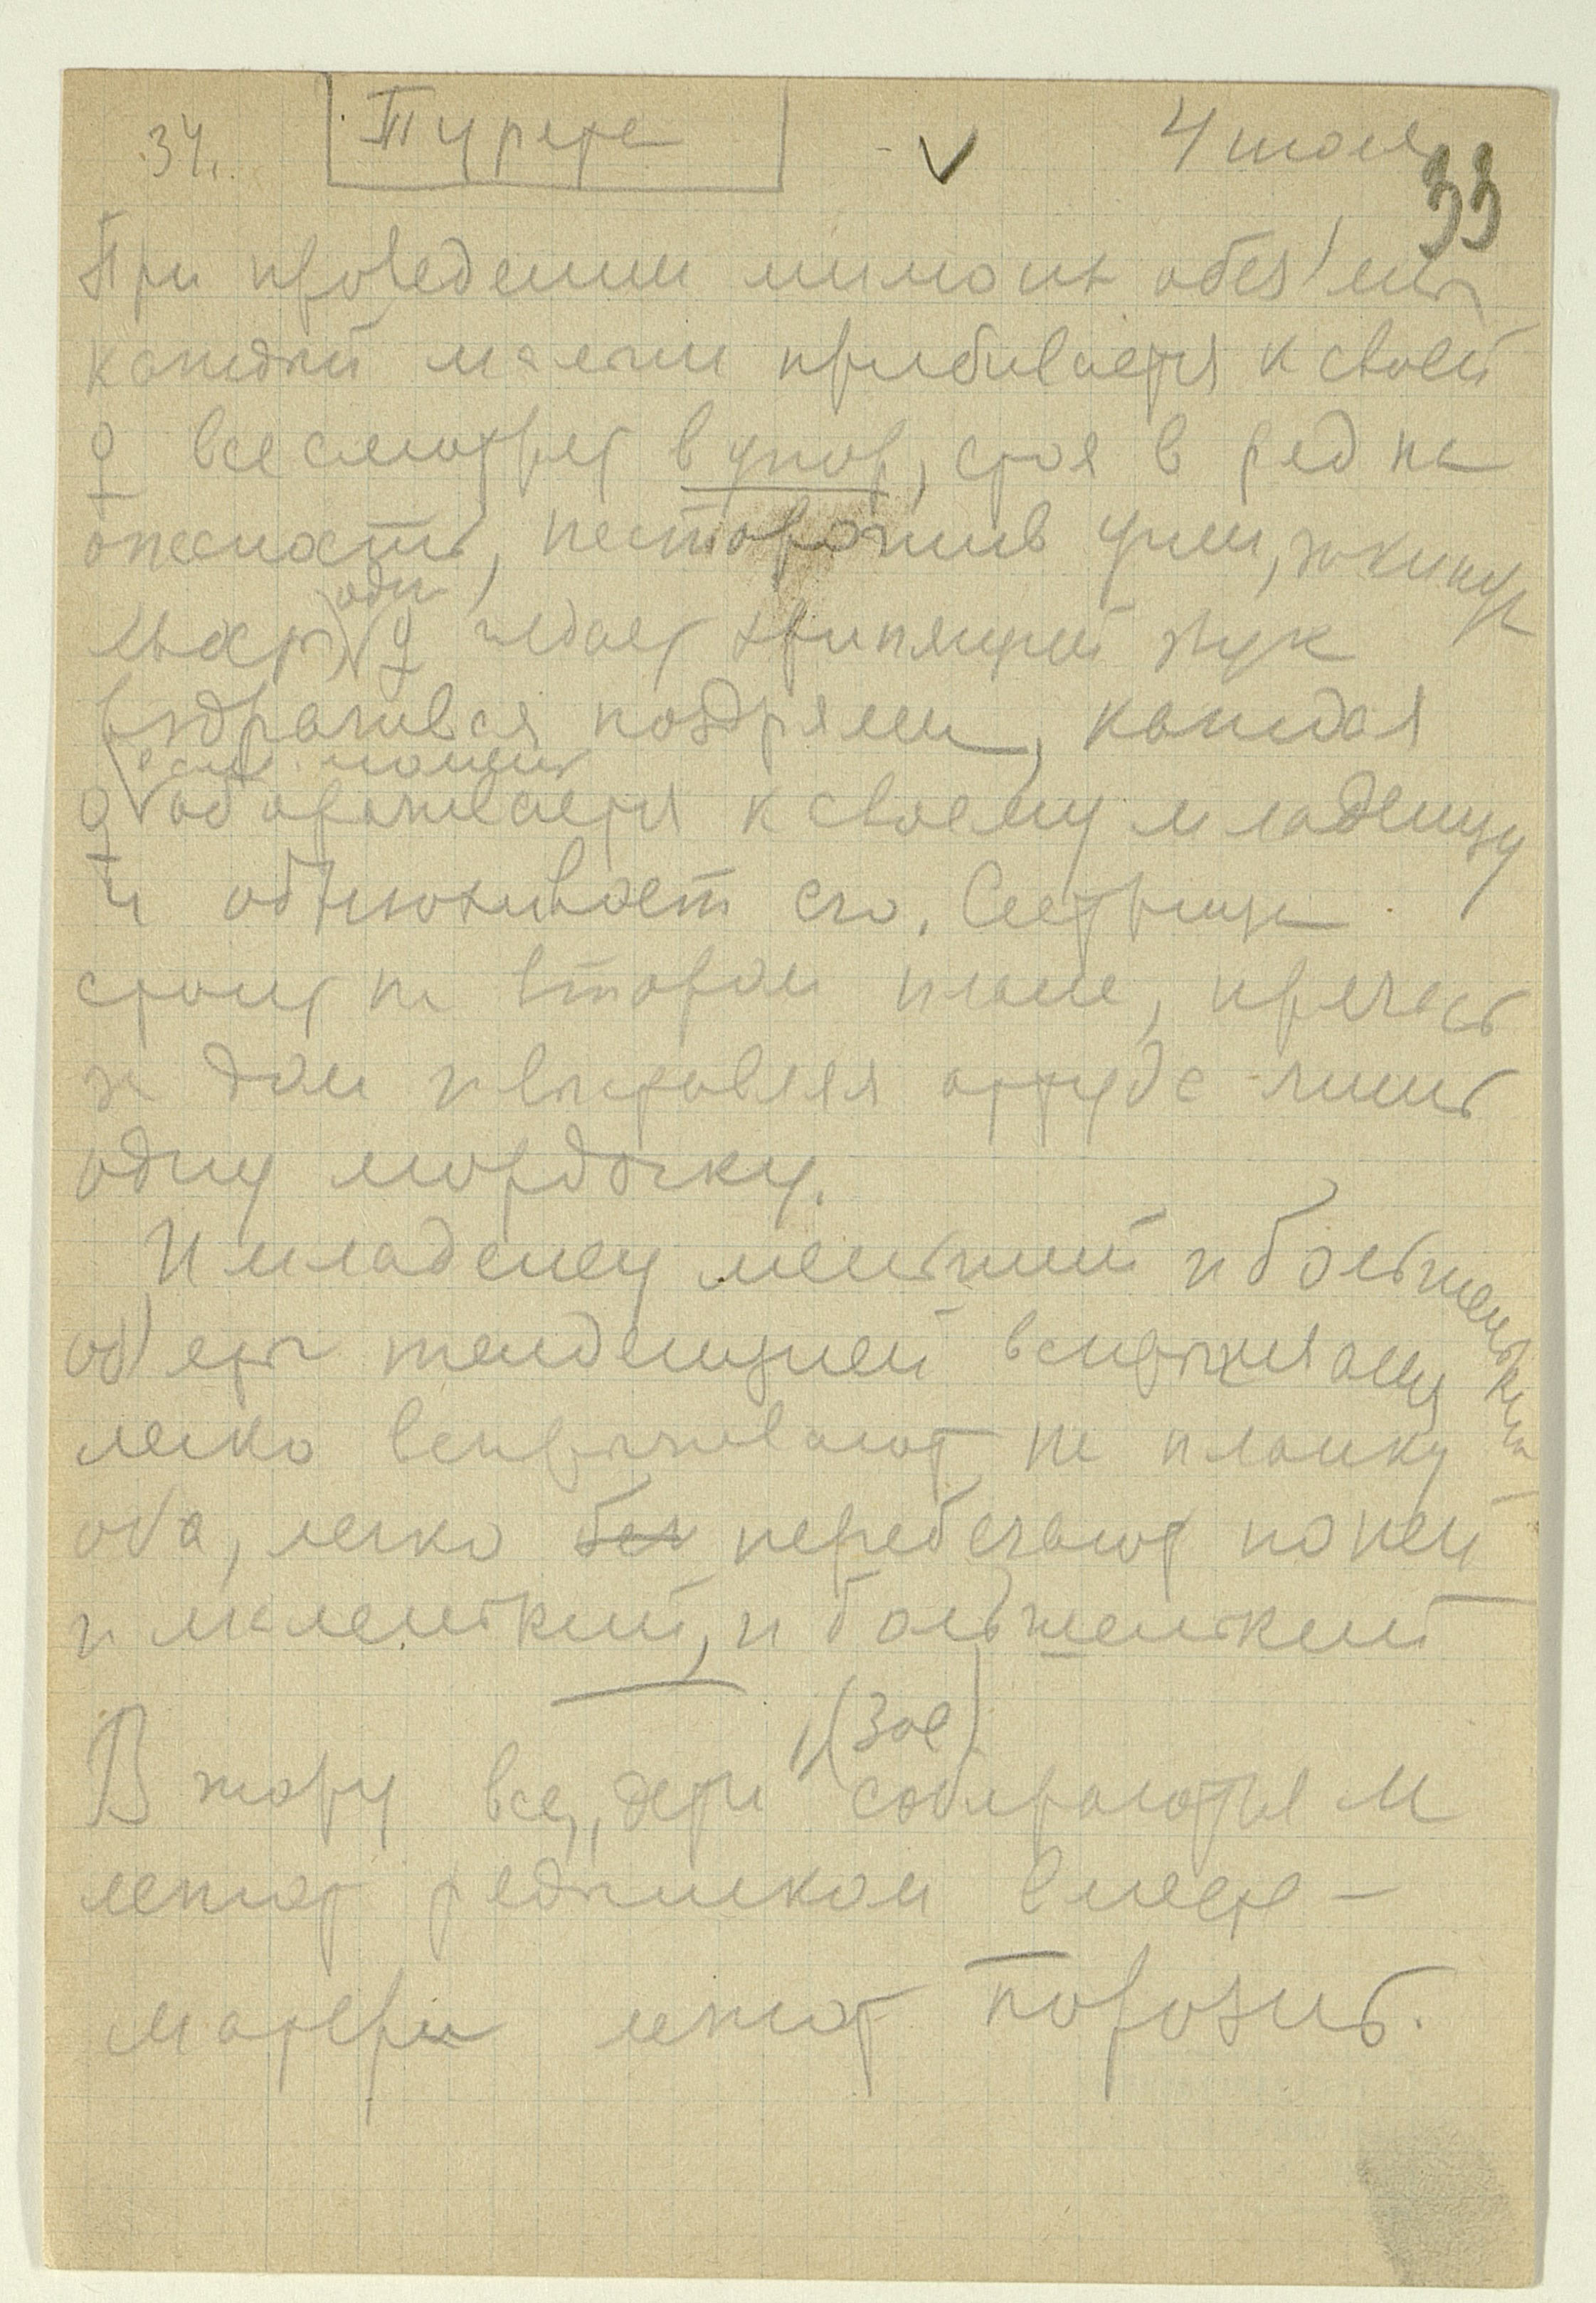 34. Туреце ✓ 4 июля
33
При проведении мимо их обез'яны
каждый малыш прибивается к своей
♀ все смотрят в упор, стоя в ряд на
опасность, насторожив уши, закинув
одна
♀ издает хрипящий звук
раздраживая ноздрями, каждая
♀ оборачивается к своему младенцу
и обнюхивает его. Сестрица
стоит на втором плане, прячась
за дом и выставляя оттуда лишь
одну мордочку.
И младенец меньший и большенький
об'яты тенденцией
легко вспрыгивают на планку
оба, легко бег перебегают по ней
и маленький, и большенький
(Зое)
В жару все „дети“ собираются и
лежат рядышком вместе —
матери лежат порознь.